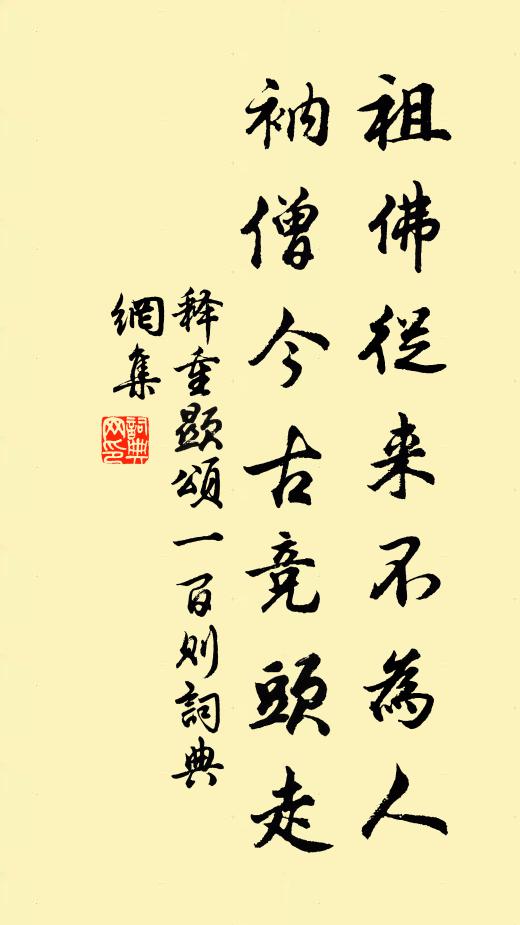 祖佛從来不為人
衲僧今古竞頭走
释重顯頌一百则詞典
網集
詞典
网印